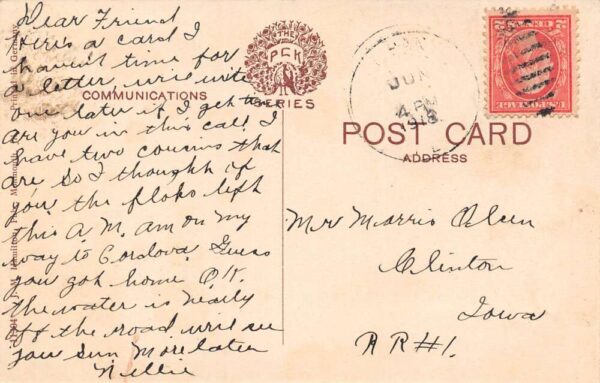 Dear Friend
Heres a card I
havent time for
a letter, will write
one later if I get time
are you in this call I
have two cousins that
are so I thought if
you the floks left
this A.M. am on my
way to Cordova. Guess
you got home O.K.
the water is nearly
off the road will see
you Sun. More later
Nellie
COMMUNICATIONS
THE
PCK
SERIES
JUN
4 PM
POST CARD
ADDRESS
Mr Morris Olsen
Clinton
Iowa
RR#1.